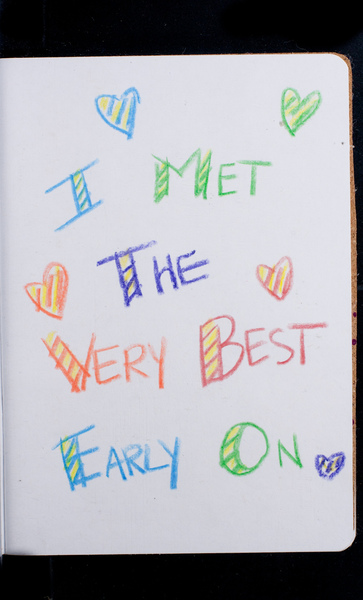 I MET
THE
VERY BEST
EARLY ON